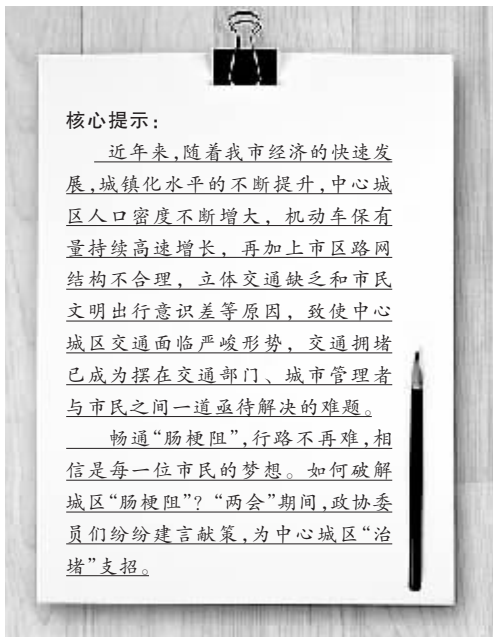 核心提示：
近年来，随着我市经济的快速发
展，城镇化水平的不断提升，中心城
区人口密度不断增大，机动车保有
量持续高速增长，再加上市区路网
结构不合理，立体交通缺乏和市民
文明出行意识差等原因，致使中心
城区交通面临严峻形势，交通拥堵
已成为摆在交通部门、城市管理者
与市民之间一道亟待解决的难题。
畅通“肠梗阻”，行路不再难，相
信是每一位市民的梦想。如何破解
城区“肠梗阻”？“两会”期间，政协委
员们纷纷建言献策，为中心城区“治
堵”支招。